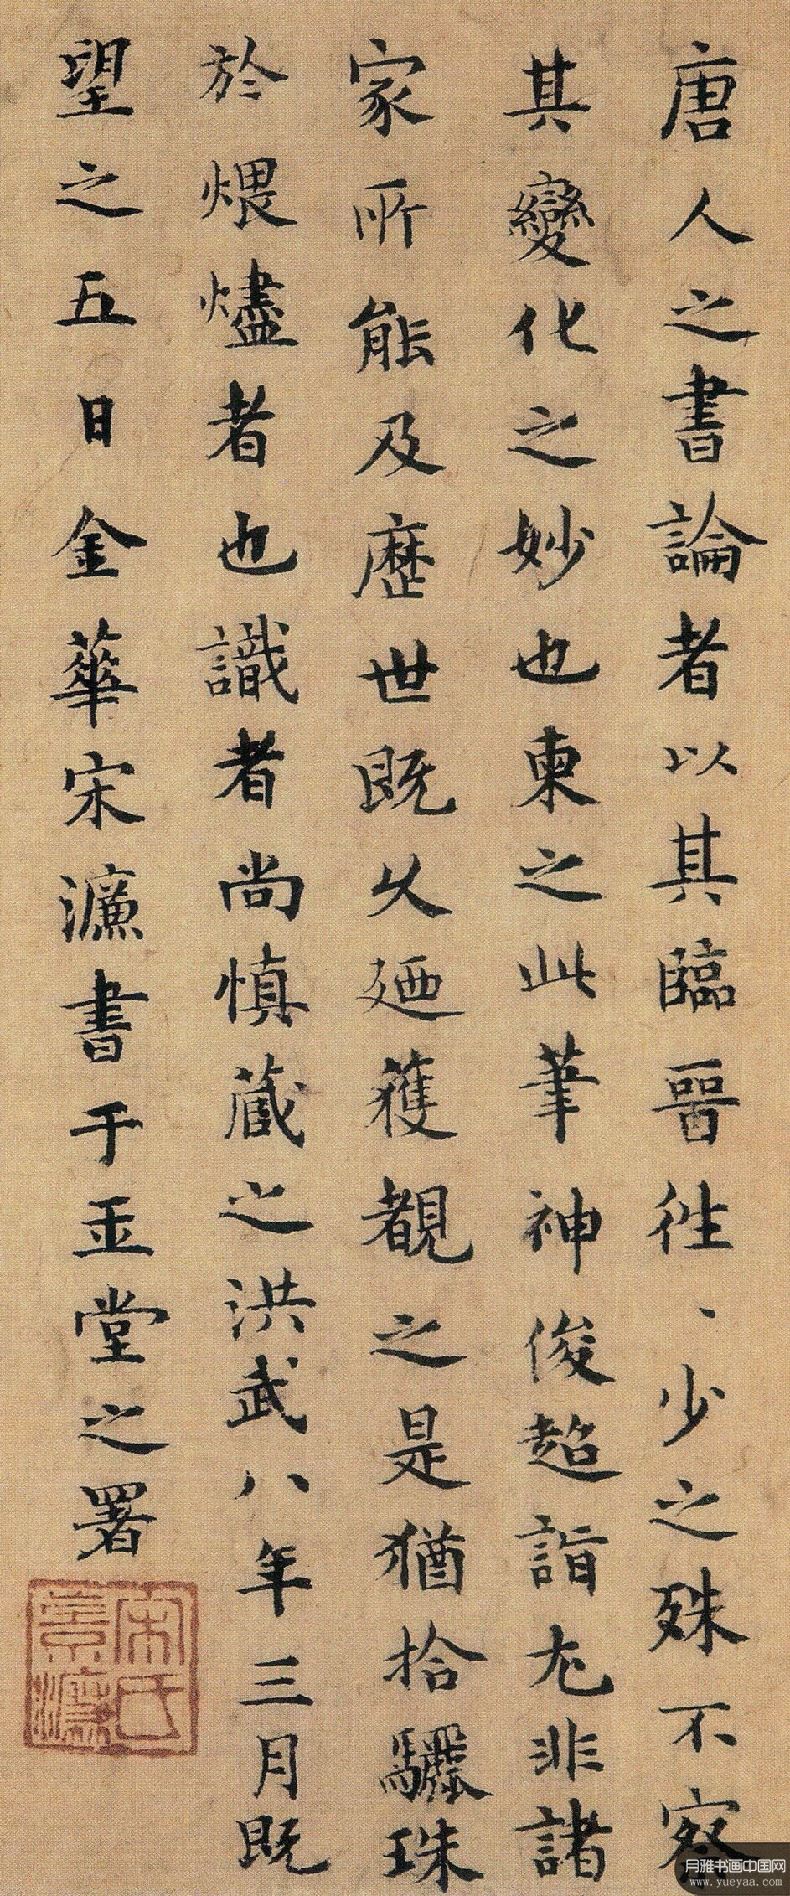 唐人之書論者以其臨晉往、少之殊不察
其變化之妙也柬之此筆神俊超詣尤非諸
家所能及歷世既久廼獲覩之是猶拾驪珠
於煨燼者也識者尚慎藏之洪武八年三月既
望之五日金華宋濂書于玉堂之署
宋氏
景濂
月雅书画中国网
www.yueyaa.com